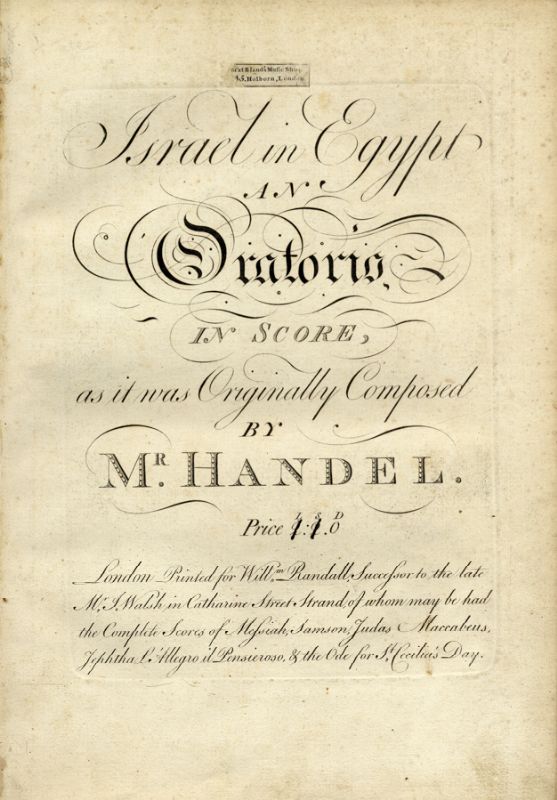 next Blands Music Shop
45, Holborn, London
Israel in Egypt
AN
Oratorio,
IN SCORE,
as it was Originally Composed
BY
Mʳ. HANDEL.
Price
London Printed for Willᵐ Randall, Successor to the late
Mʳ. I. Walsh, in Catharine Street Strand, of whom may be had
the Complete Scores of Meſsiah, Samson, Judas Maccabeus,
Jephtha L'Allegro il Pensieroso, & the Ode for Sᵗ. Cecilia's Day.